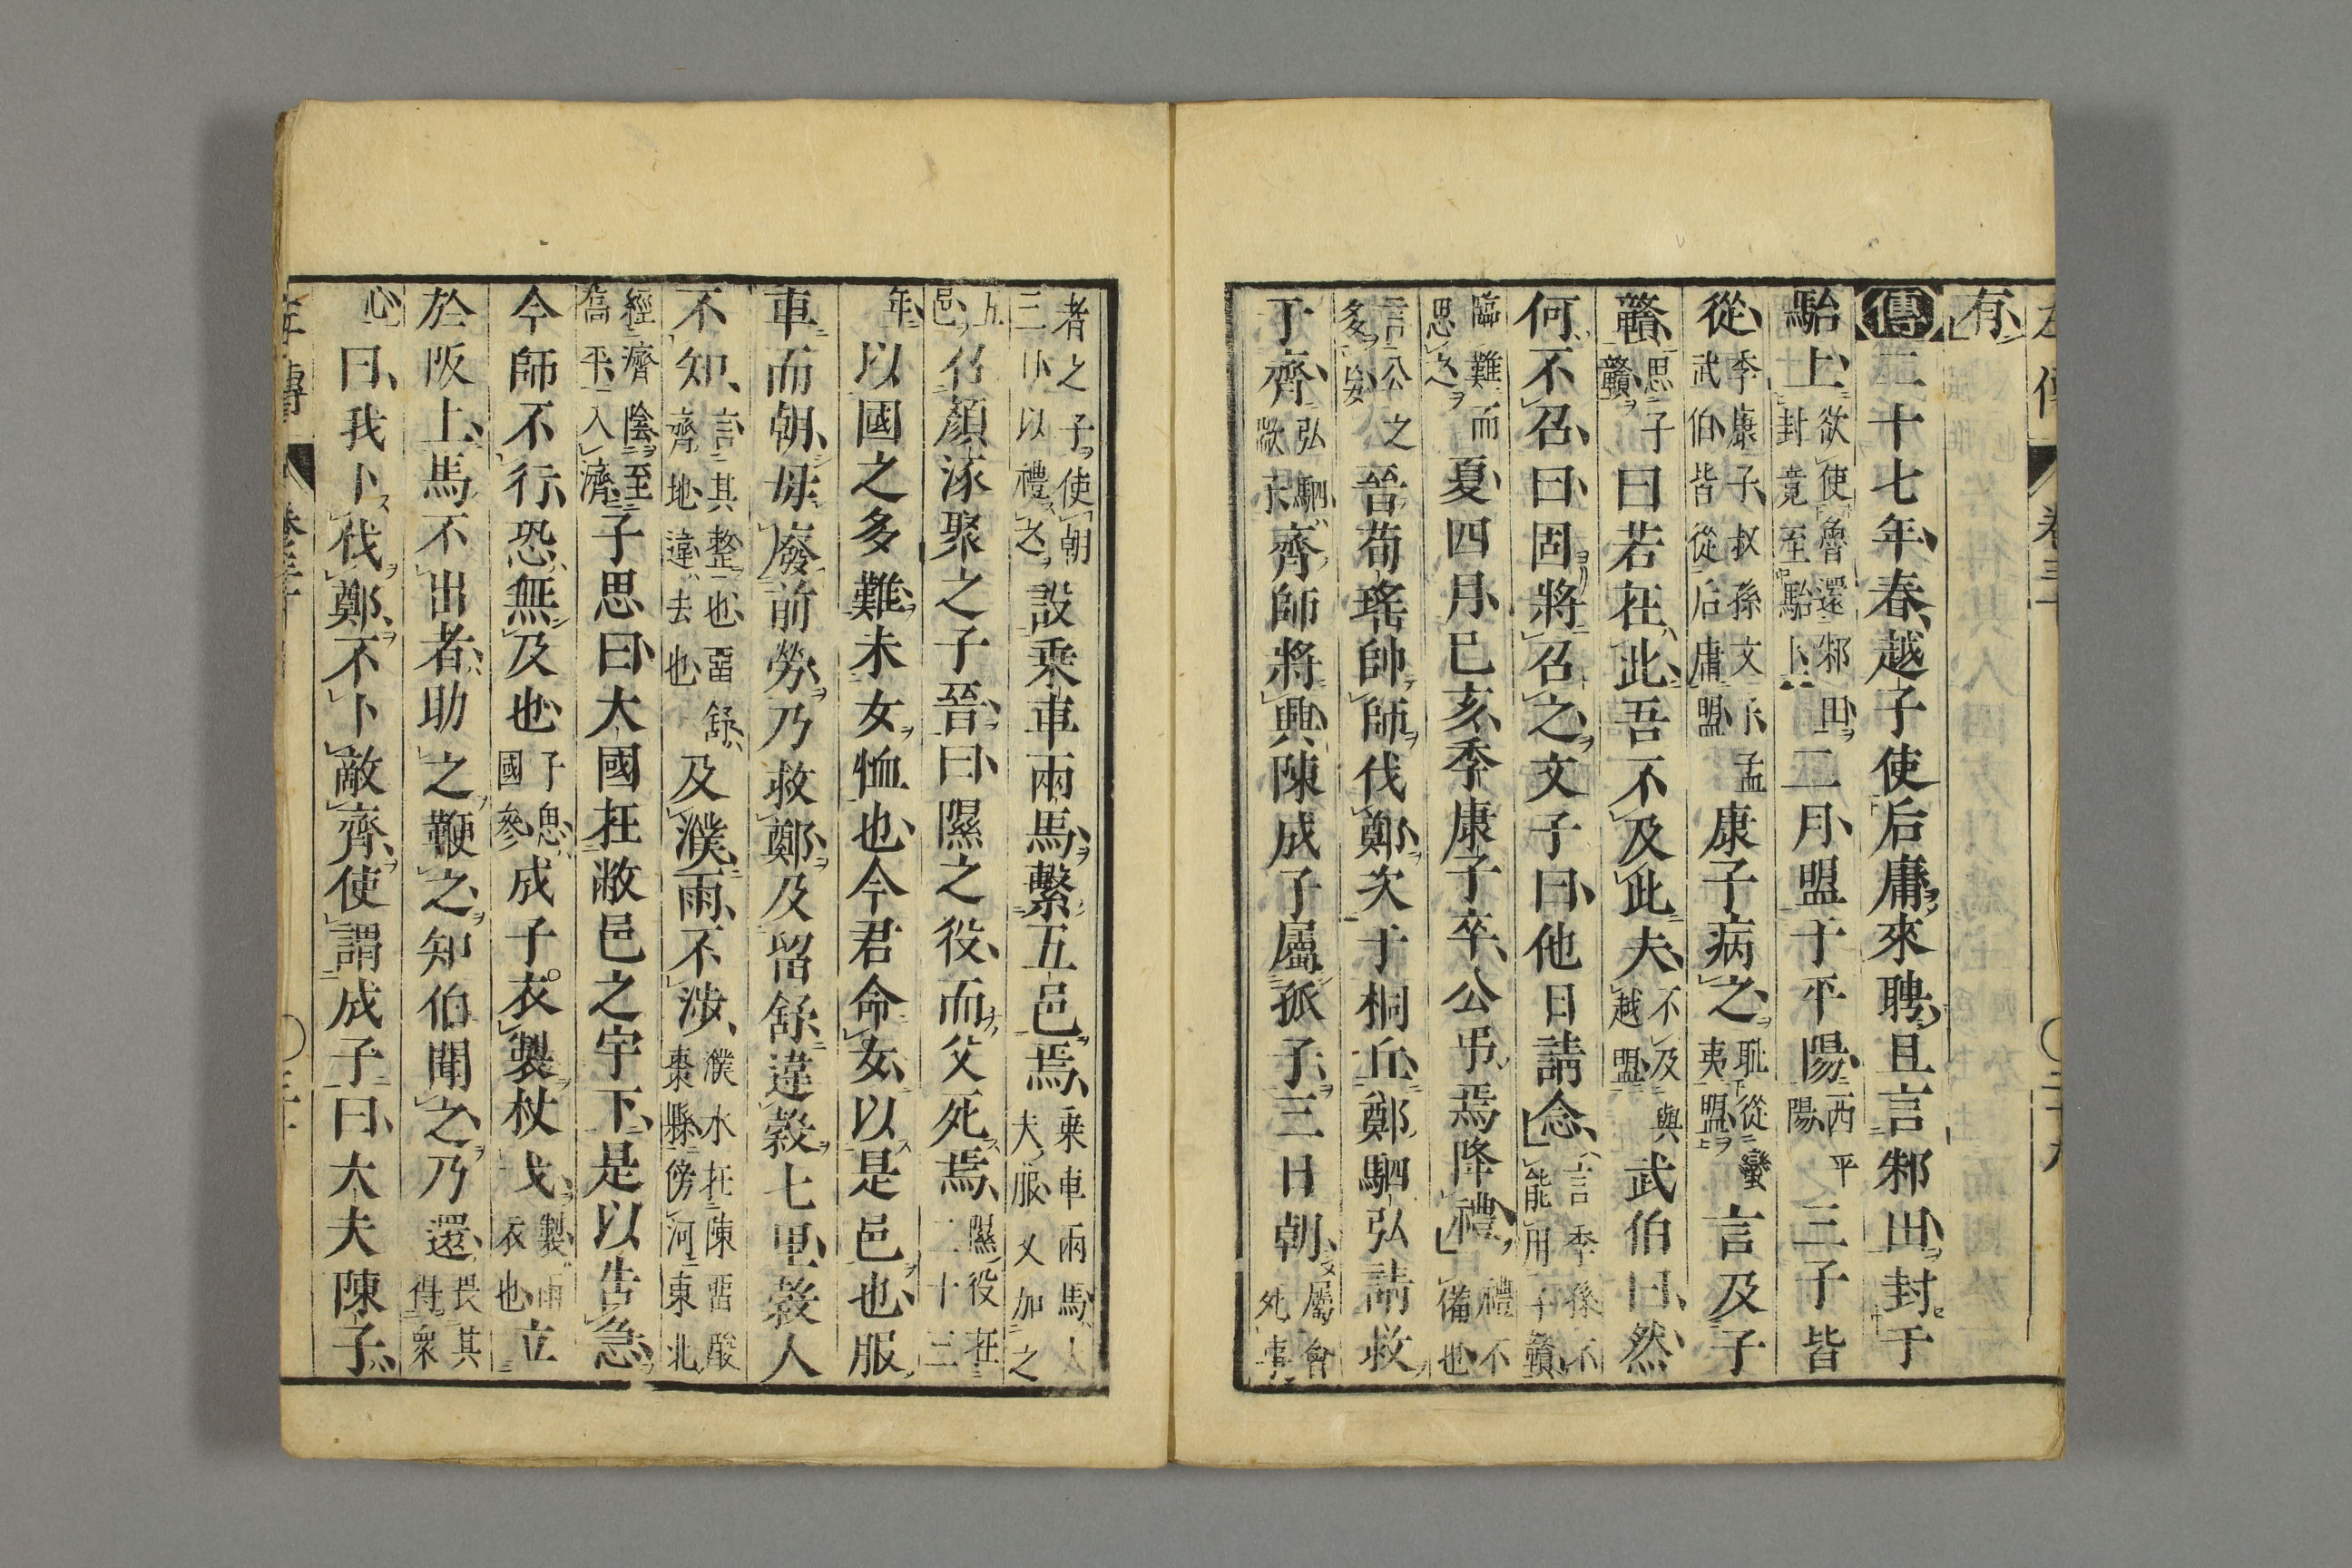 有
傳二十七年春越子使后庸來聘且言邾田封于
駘上欲使魯還邾田封竟至駘上二月盟于平陽西平陽三子皆
從季康子叔孫文子孟武伯皆從后庸盟康子病之耻從蠻夷盟言及子
贛思子贛曰若在此吾不及此夫不及與越盟武伯曰然
何不召曰固將召之文子曰他日請念言季孫不能用子贛
臨難而思之夏四月己亥季康子卒公弔焉降禮禮不備也
言公之多妄晉荀瑤帥師伐鄭次于桐丘鄭駟弘請救
于齊弘駟歂子齊師將興陳成子屬孤子三日朝屬會死事
者之子使朝三日以禮之設乘車兩馬繫五邑焉乘車兩馬大夫服又加之
五邑召顏涿聚之子晉曰隰之役而父死焉隰役在二十三
年以國之多難未女恤也今君命女以是邑也服
車而朝毋廢前勞乃救鄭及留舒違穀七里穀人
不知言其整也畱舒齊地違去也及濮雨不涉濮水在陳畱酸棗縣傍河東北
經濟陰至高平入濟子思曰大國在敝邑之宇下是以告急
今師不行恐無及也子思國參成子衣製杖戈製雨衣也立
於阪上馬不出者助之鞭之知伯聞之乃還畏其得衆
心曰我卜伐鄭不卜敵齊使謂成子曰大夫陳子
左傳 卷三十